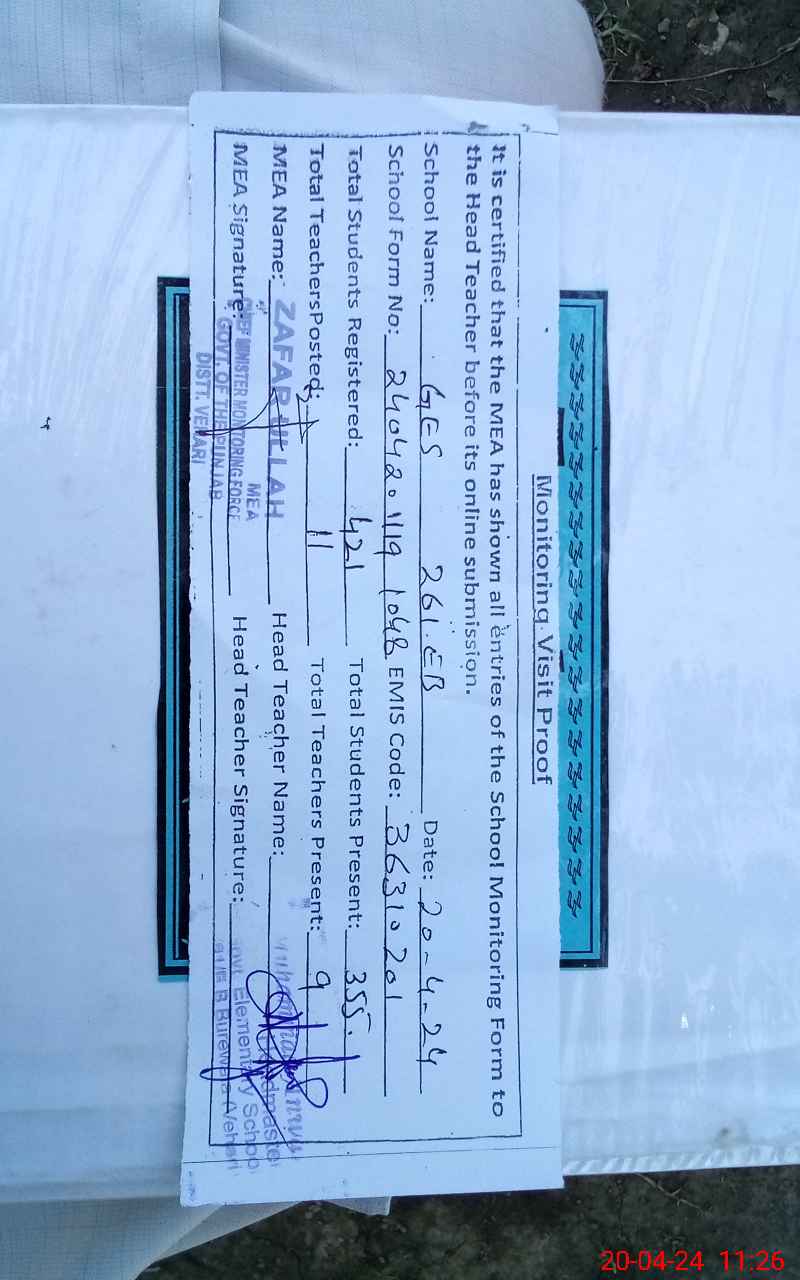 Monitoring Visit Proof
It is certified that the MEA has shown all entries of the School Monitoring Form to
the Head Teacher before its online submission.
School Name: GES 261.EB Date: 20-4-24
School Form No: 2404201119 1048 EMIS Code: 36310201
Total Students Registered: 421 Total Students Present: 355.
Total TeachersPosted: 11 Total Teachers Present: 9
MEA Name: ZAFAR ULLAH Head Teacher Name:
MEA
MEA Signature: Head Teacher Signature:
CHIEF MINISTER MONITORING FORCE
GOVT. OF THE PUNJAB
DISTT. VEHARI
Headmaster
Govt. Elementary School
261/E.B Burewala Vehari
20-04-24 11:26